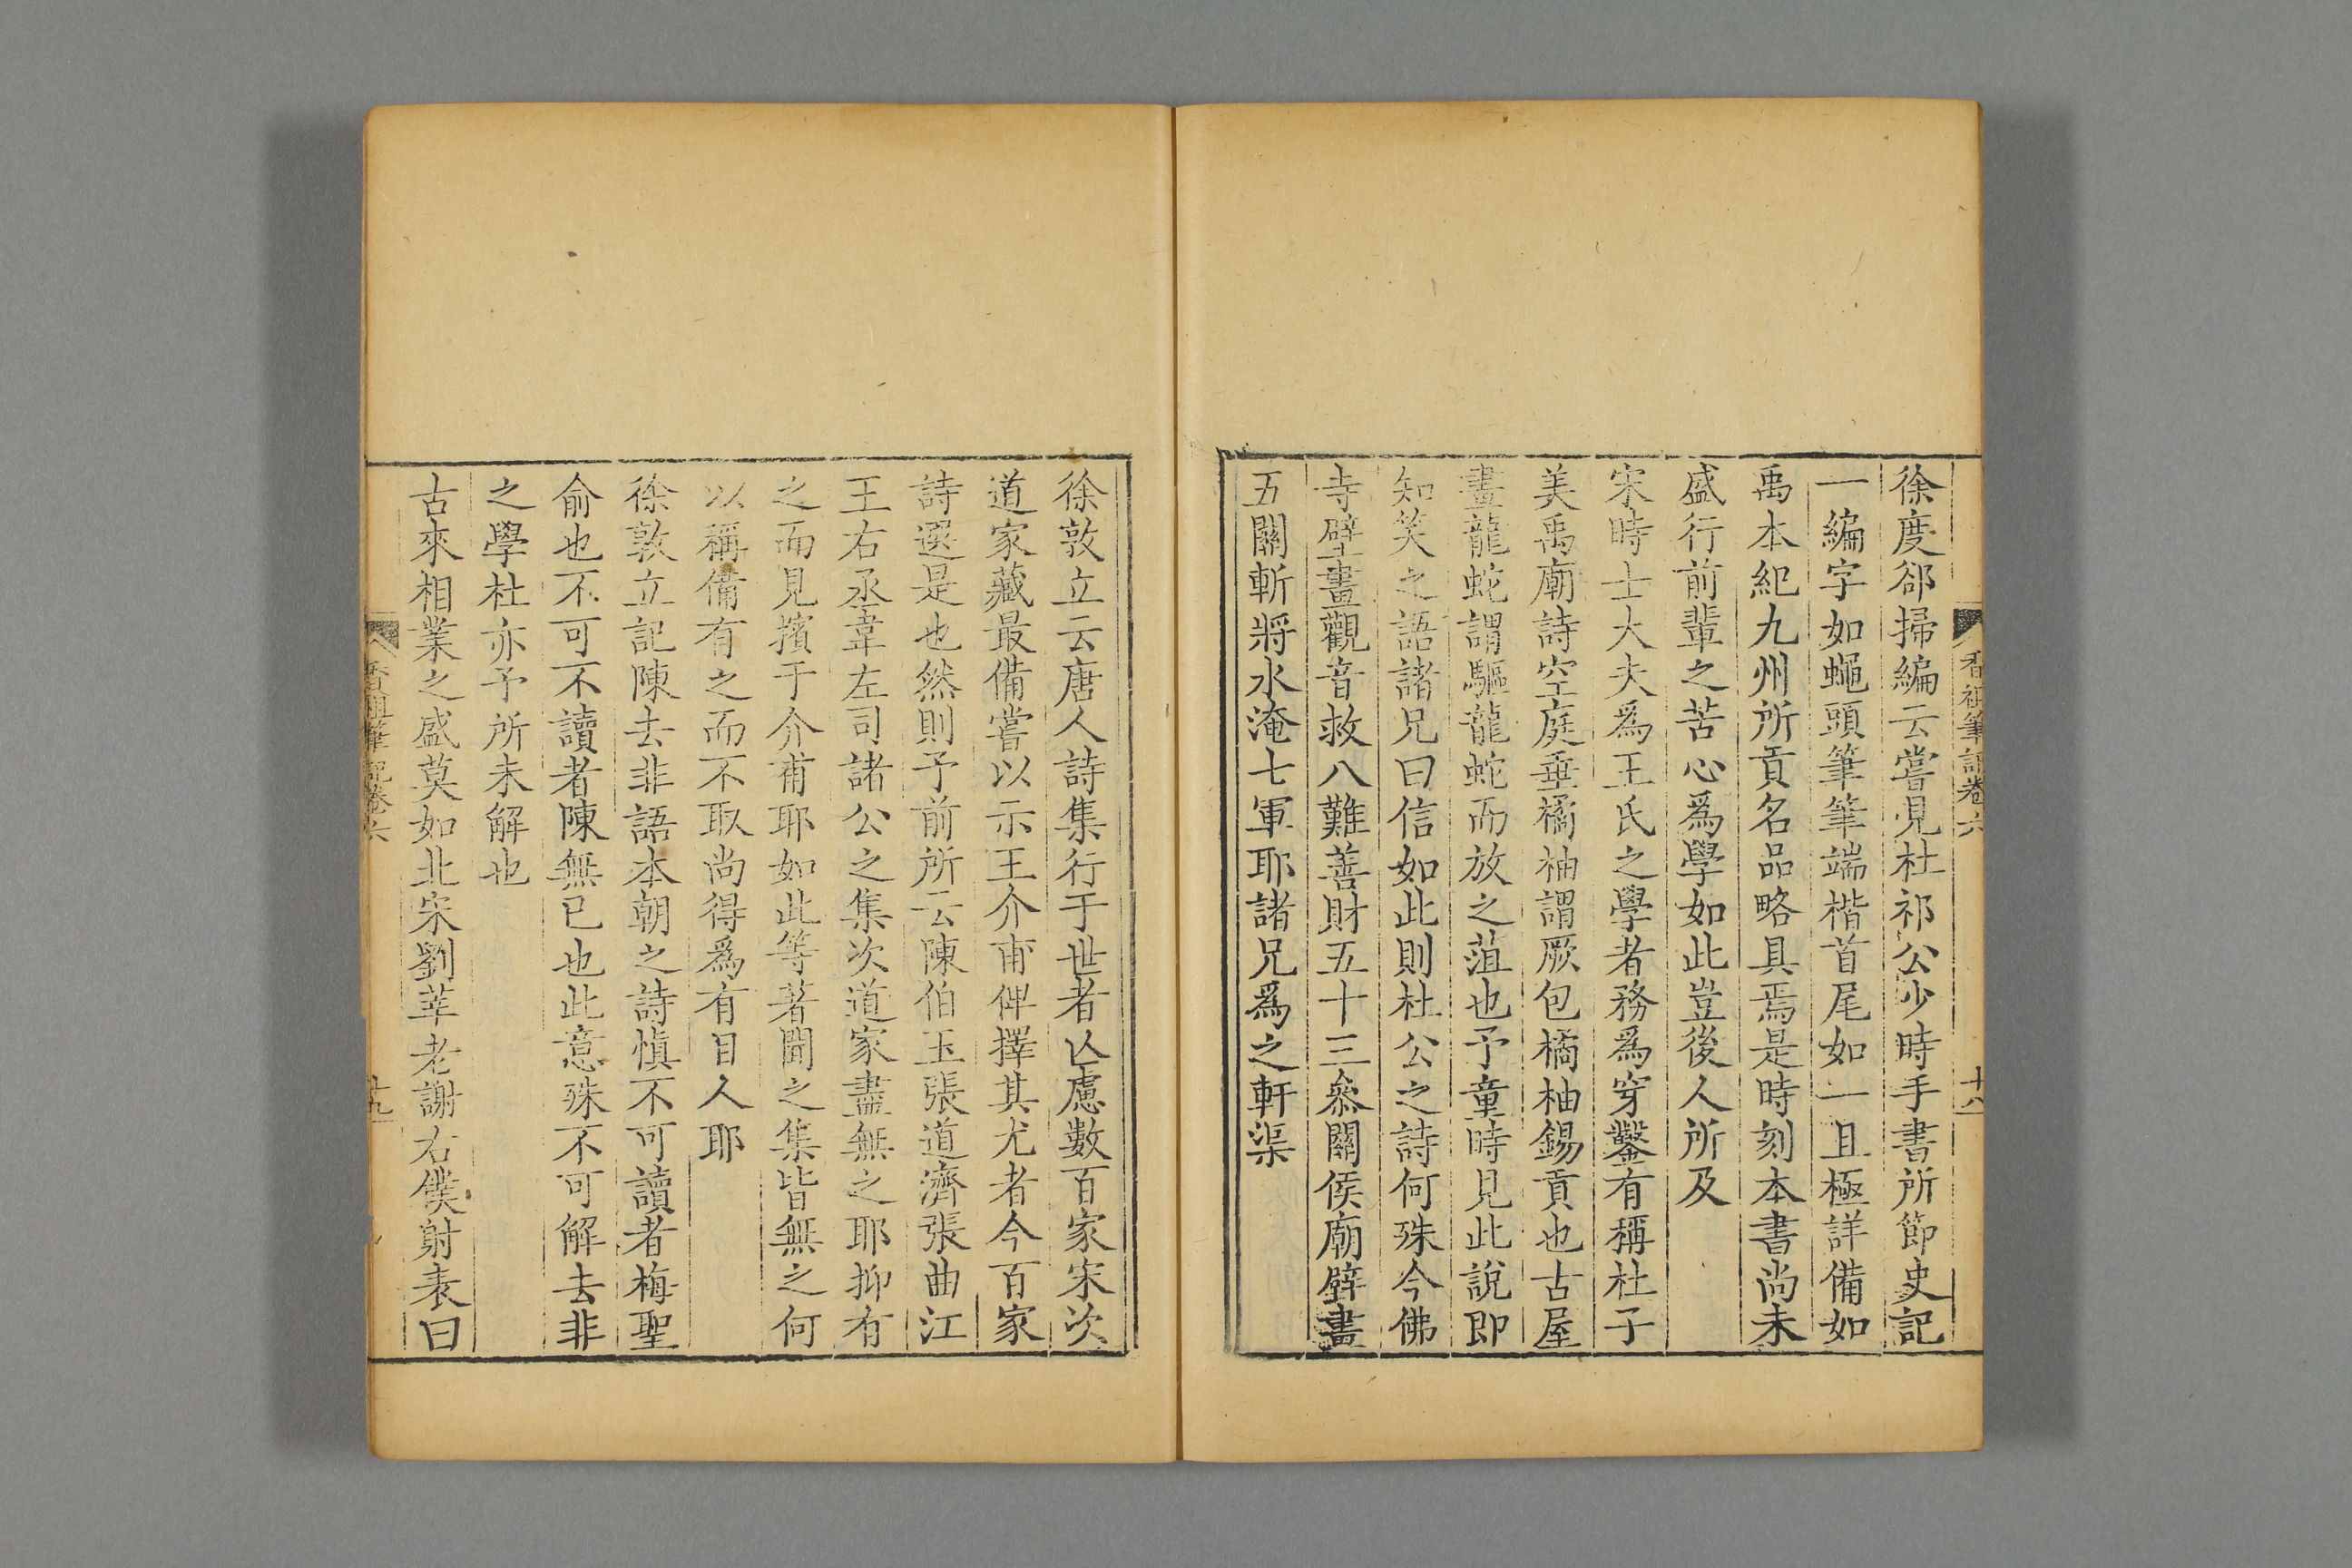 香祖筆記卷六
十八
徐度郤掃編云嘗見杜祁公少時手書所節史記
一編字如蠅頭筆筆端楷首尾如一且極詳備如
禹本紀九州所貢名品略具焉是時刻本書尚未
盛行前輩之苦心爲學如此豈後人所及
宋時士大夫爲王氏之學者務爲穿鑿有稱杜子
美禹廟詩空庭垂橘柚謂厥包橘柚錫貢也古屋
畫龍蛇謂驅龍蛇而放之菹也予童時見此說即
知笑之語諸兄曰信如此則杜公之詩何殊今佛
寺壁畫觀音救八難善財五十三叅關侯廟壁畫
五關斬將水淹七軍耶諸兄爲之軒渠
徐敦立云唐人詩集行于世者亾慮數百家宋次
道家藏最備嘗以示王介甫俾擇其尤者今百家
詩選是也然則予前所云陳伯玉張道濟張曲江
王右丞韋左司諸公之集次道家盡無之耶抑有
之而見擯于介甫耶如此等著聞之集皆無之何
以稱備有之而不取尚得爲有目人耶
徐敦立記陳去非語本朝之詩愼不可讀者梅聖
俞也不可不讀者陳無已也此意殊不可解去非
之學杜亦予所未解也
古來相業之盛莫如北宋劉莘老謝右僕射表曰
香祖筆記卷六
十九